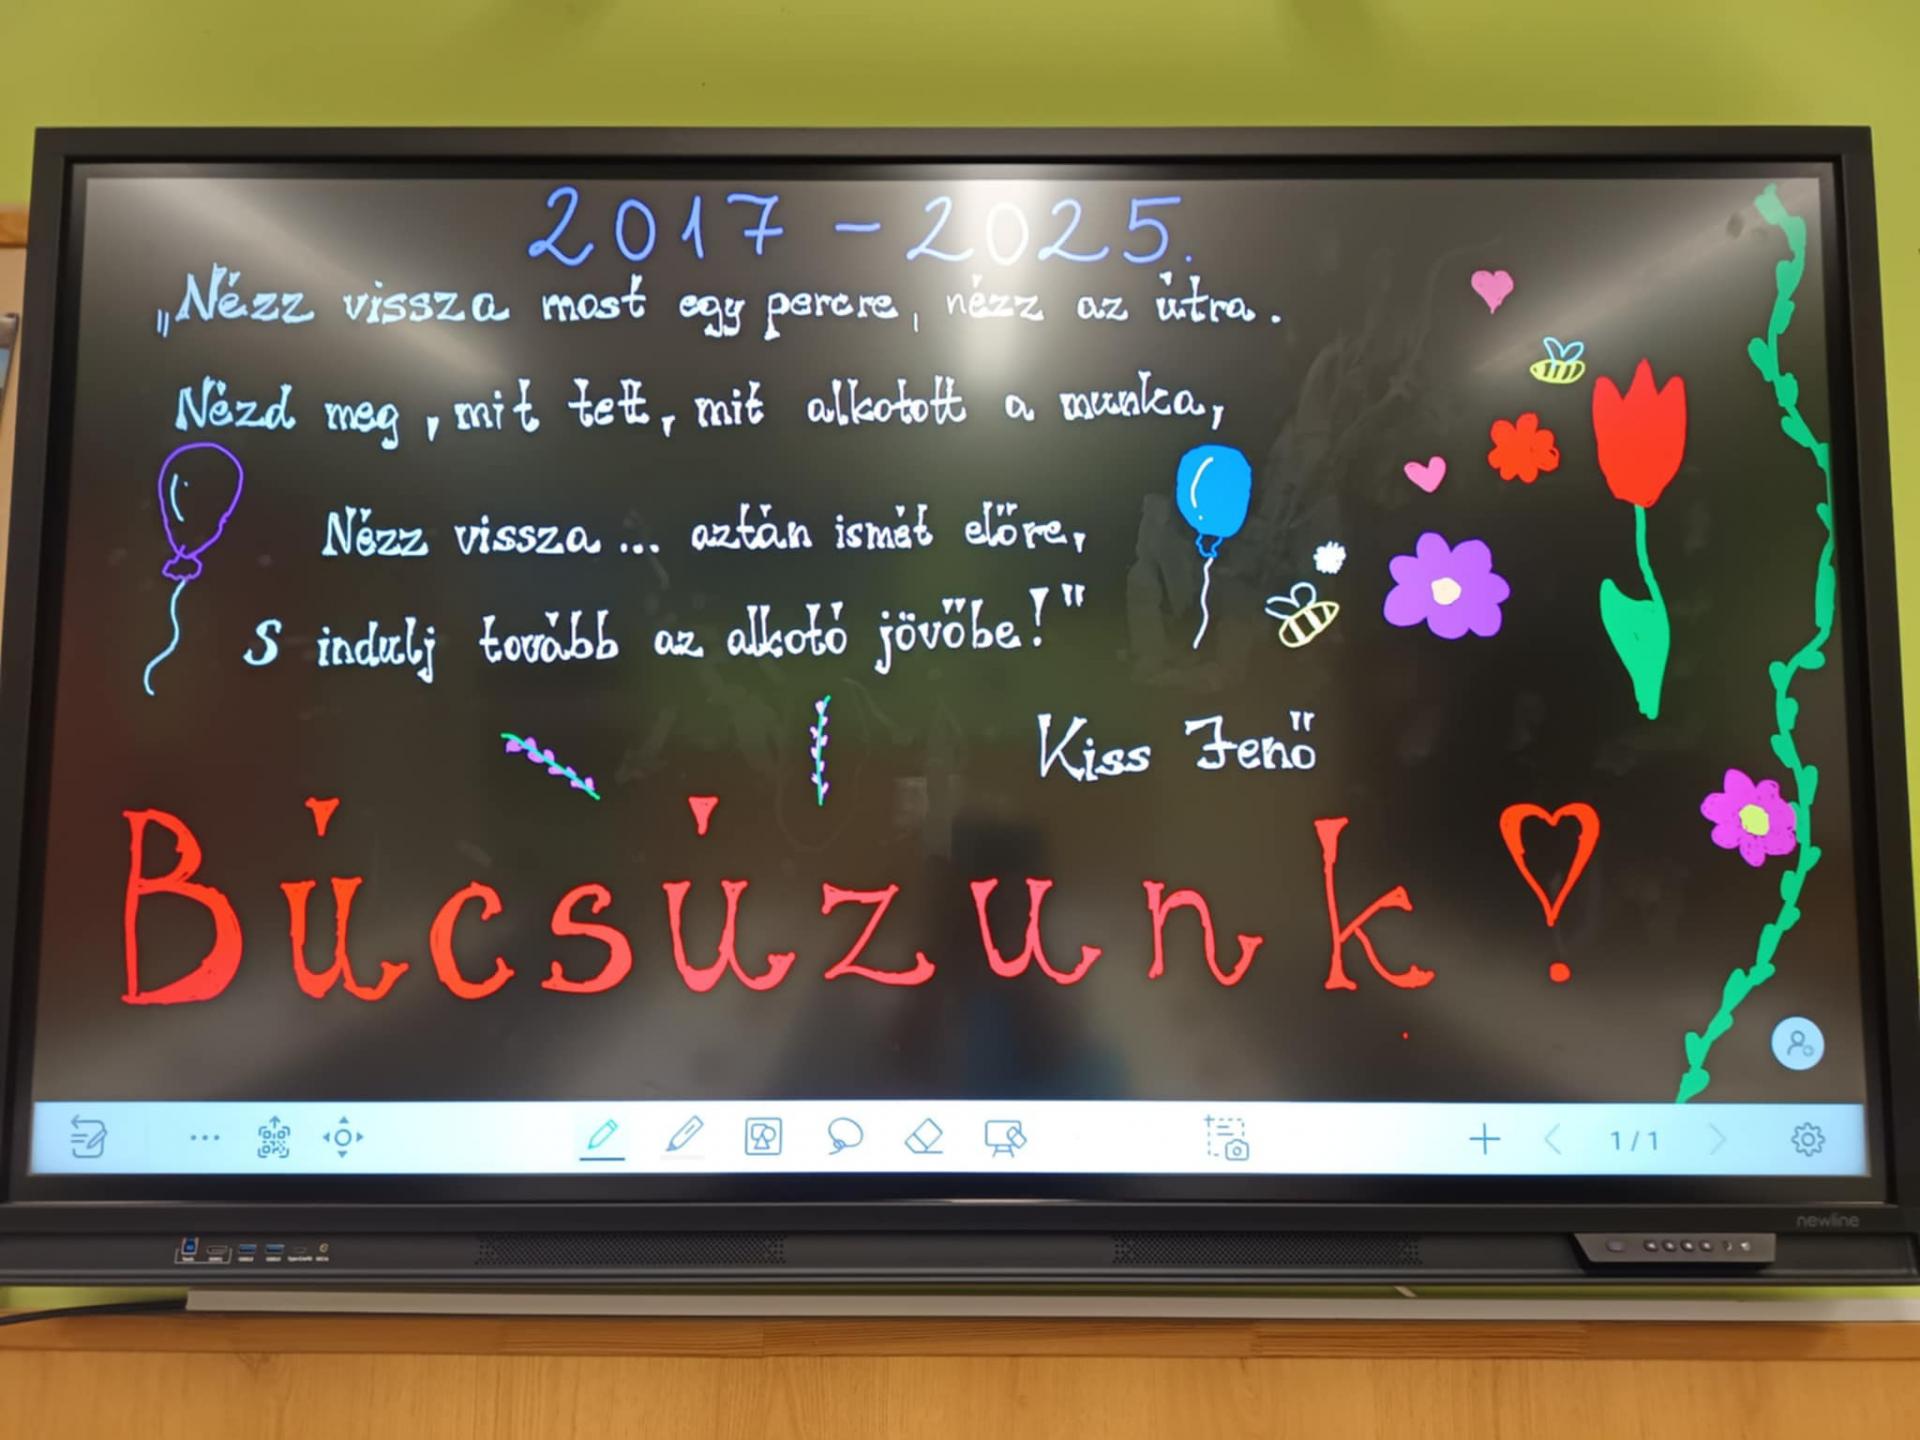 2017 - 2025.
„Nézz vissza most egy percre, nézz az útra.
Nézd meg, mit tett, mit alkotott a munka,
Nézz vissza... aztán ismét előre,
S indulj tovább az alkotó jövőbe!"
Kiss Jenő
Búcsúzunk!
1/1
newline